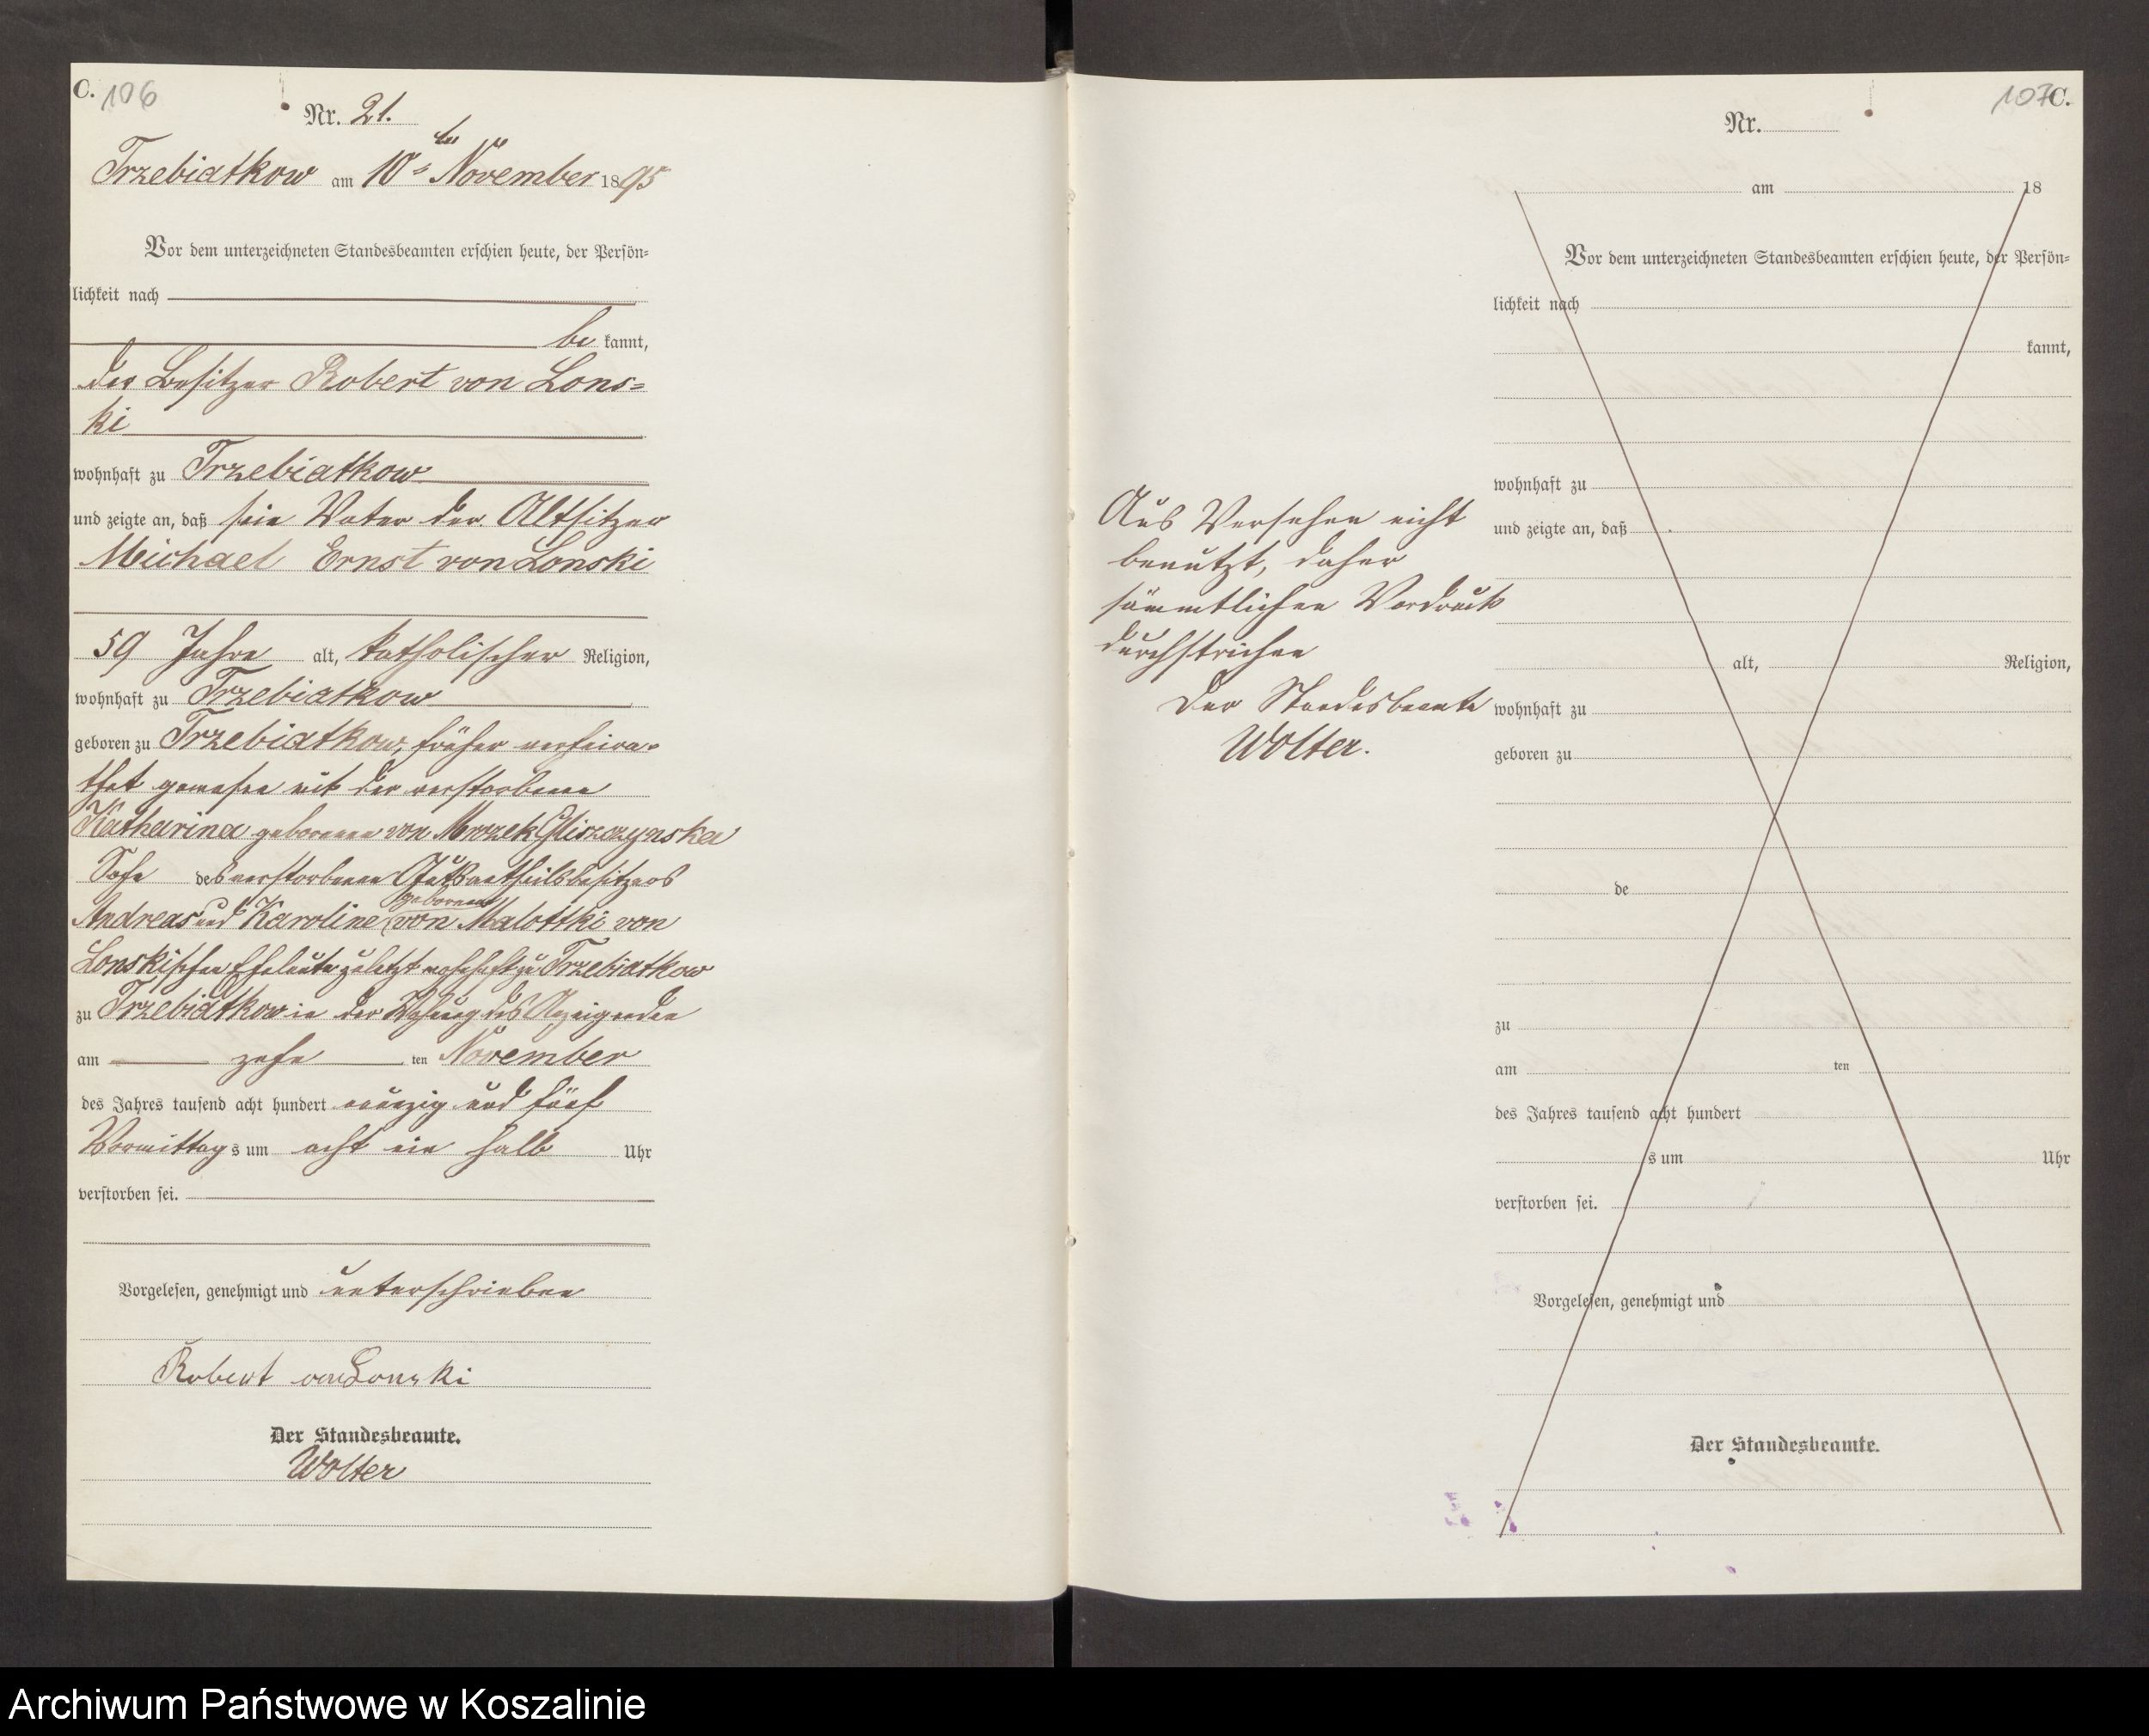 C. 106
Nr. 21.
Trzebiatkow am 10ten November 1895
Vor dem unterzeichneten Standesbeamten erschien heute, der Persön-
lichkeit nach
be kannt,
der Besitzer Robert von Lons-
ki
wohnhaft zu Trzebiatkow
und zeigte an, daß sein Vater der Altsitzer
Michael Ernst von Lonski
59 Jahre alt, katholischer Religion,
wohnhaft zu Trzebiatkow
geboren zu Trzebiatkow, früher verheira-
thet gewesen mit der verstorbenen
Katharina geborenen von Mrozek Gliszczynska
Sohn des verstorbenen Gutsantheilsbesitzers
Andreas und Karoline geborene von Malottki von
Lonskischen Eheleute zuletzt wohnhaft zu Trzebiatkow
zu Trzebiatkow in der Wohnung des Anzeigenden
am zehn ten November
des Jahres tausend acht hundert neunzig und fünf
Vormittags um acht ein halb Uhr
verstorben sei.
Vorgelesen, genehmigt und unterschrieben
Robert von Lonski
Der Standesbeamte.
Wolter
107 C.
Nr.
am 18
Vor dem unterzeichneten Standesbeamten erschien heute, der Persön-
lichkeit nach
kannt,
wohnhaft zu
und zeigte an, daß
alt, Religion,
wohnhaft zu
geboren zu
de
zu
am ten
des Jahres tausend acht hundert
s um Uhr
verstorben sei.
Vorgelesen, genehmigt und
Der Standesbeamte.
Aus Versehen nicht
benutzt, daher
sämmtlichen Vordruck
durchstrichen
Der Standesbeamte
Wolter.
Archiwum Państwowe w Koszalinie